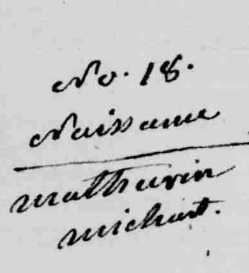 No. 18.
Naissance
mathurin
michart.